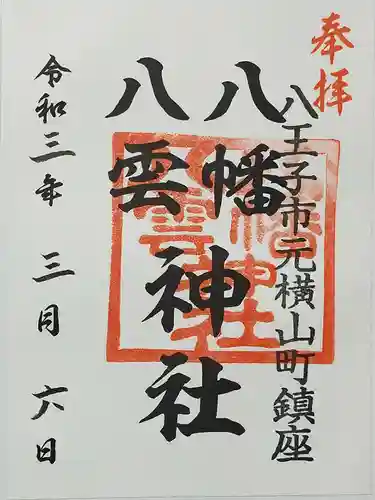 奉拝
八王子市元横山町鎮座
八幡
八雲
神社
令和三年 三月 六日